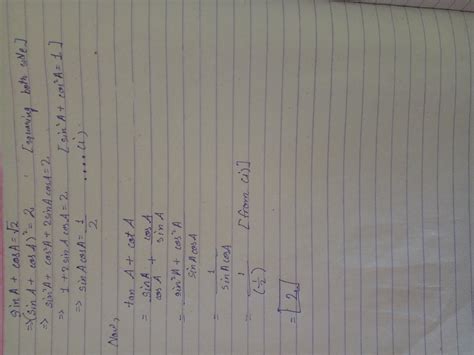 sin A + cos A = √2
⇒ (sin A + cos A)² = 2. [squaring both side]
⇒ sin²A + cos²A + 2 sin A cos A = 2.
⇒ 1 + 2 sin A cos A = 2. [sin²A + cos²A = 1]
⇒ sin A cos A = 1/2 ....(i)
Now,
tan A + cot A
= sin A/cos A + cos A/sin A
= sin²A + cos²A/sin A cos A
= 1/sin A cos A
= 1/(1/2) [from (i)]
= 2